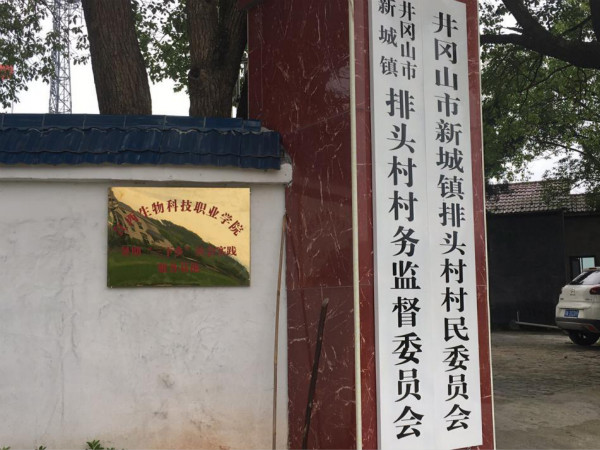 井冈山市新城镇排头村村民委员会
井冈山市
新城镇
排头村村务监督委员会
生物科技职业学院
实践